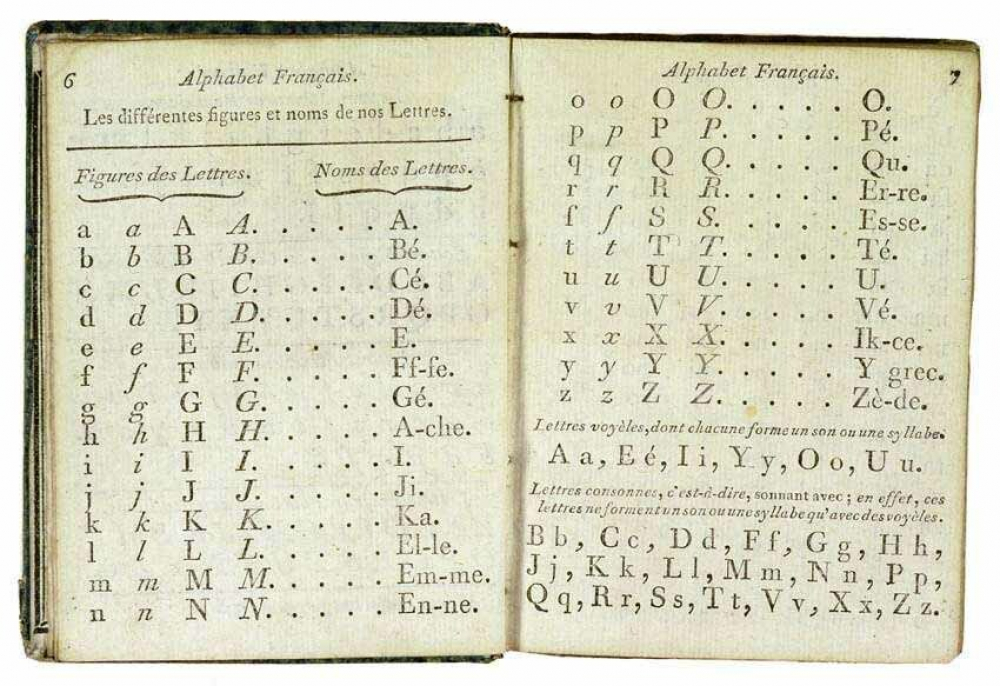 6 Alphabet Français.
Les différentes figures et noms de nos Lettres.
Figures des Lettres. Noms des Lettres.
a a A A. . . . . . A.
b b B B. . . . . . Bé.
c c C C. . . . . . Cé.
d d D D. . . . . . Dé.
e e E E. . . . . . E.
f f F F. . . . . . Ff-fe.
g g G G. . . . . . Gé.
h h H H. . . . . . A-che.
i i I I. . . . . . I.
j j J J. . . . . . Ji.
k k K K. . . . . . Ka.
l l L L. . . . . . El-le.
m m M M. . . . . . Em-me.
n n N N. . . . . . En-ne.
Alphabet Français. 7
o o O O. . . . . . O.
p p P P. . . . . . Pé.
q q Q Q. . . . . . Qu.
r r R R. . . . . . Er-re.
ſ ſ S S. . . . . Es-se.
t t T T. . . . . . Té.
u u U U. . . . . . U.
v v V V. . . . . . Vé.
x x X X. . . . . . Ik-ce.
y y Y Y. . . . . . Y grec.
z z Z Z. . . . . . Zè-de.
Lettres voyèles, dont chacune forme un son ou une syllabe.
A a, E é, I i, Y y, O o, U u.
Lettres consonnes, c'est-à-dire, sonnant avec ; en effet, ces
lettres ne forment un son ou une syllabe qu'avec des voyèles.
B b, C c, D d, F f, G g, H h,
J j, K k, L l, M m, N n, P p,
Q q, R r, S s, T t, V v, X x, Z z.